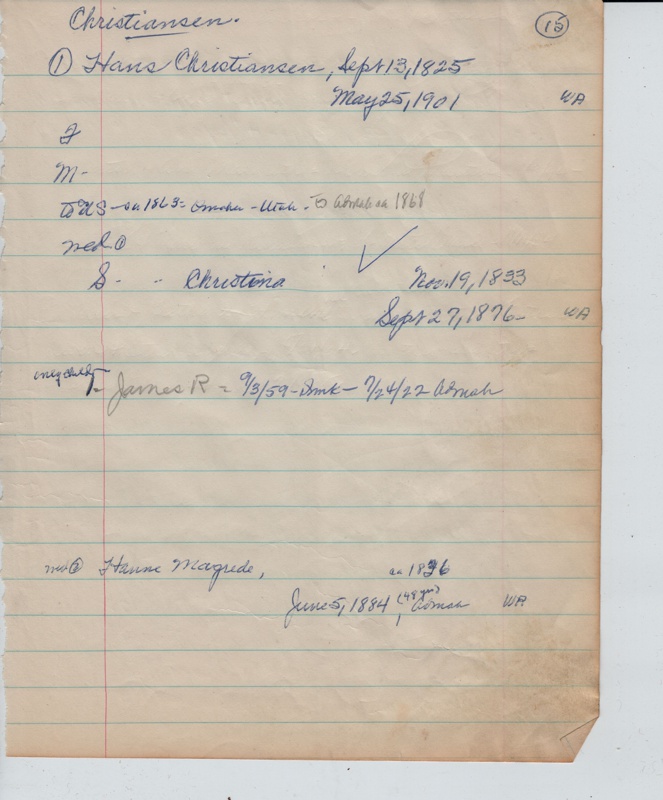 Christiansen.
15
① Hans Christiansen, Sept 13, 1825
May 25, 1901 WA
F
M-
to US - ca 1863 - Omaha - Utah - to Admah ca 1868
wed ①
S - - Christina Nov. 19, 1833
Sept 27, 1876 - WA
only child
- James R = 9/3/59 - Dmk - 7/24/22 Admah
wed ② Hanne Magrede, ca 1836
June 5, 1884 (48 yrs), Admah WA